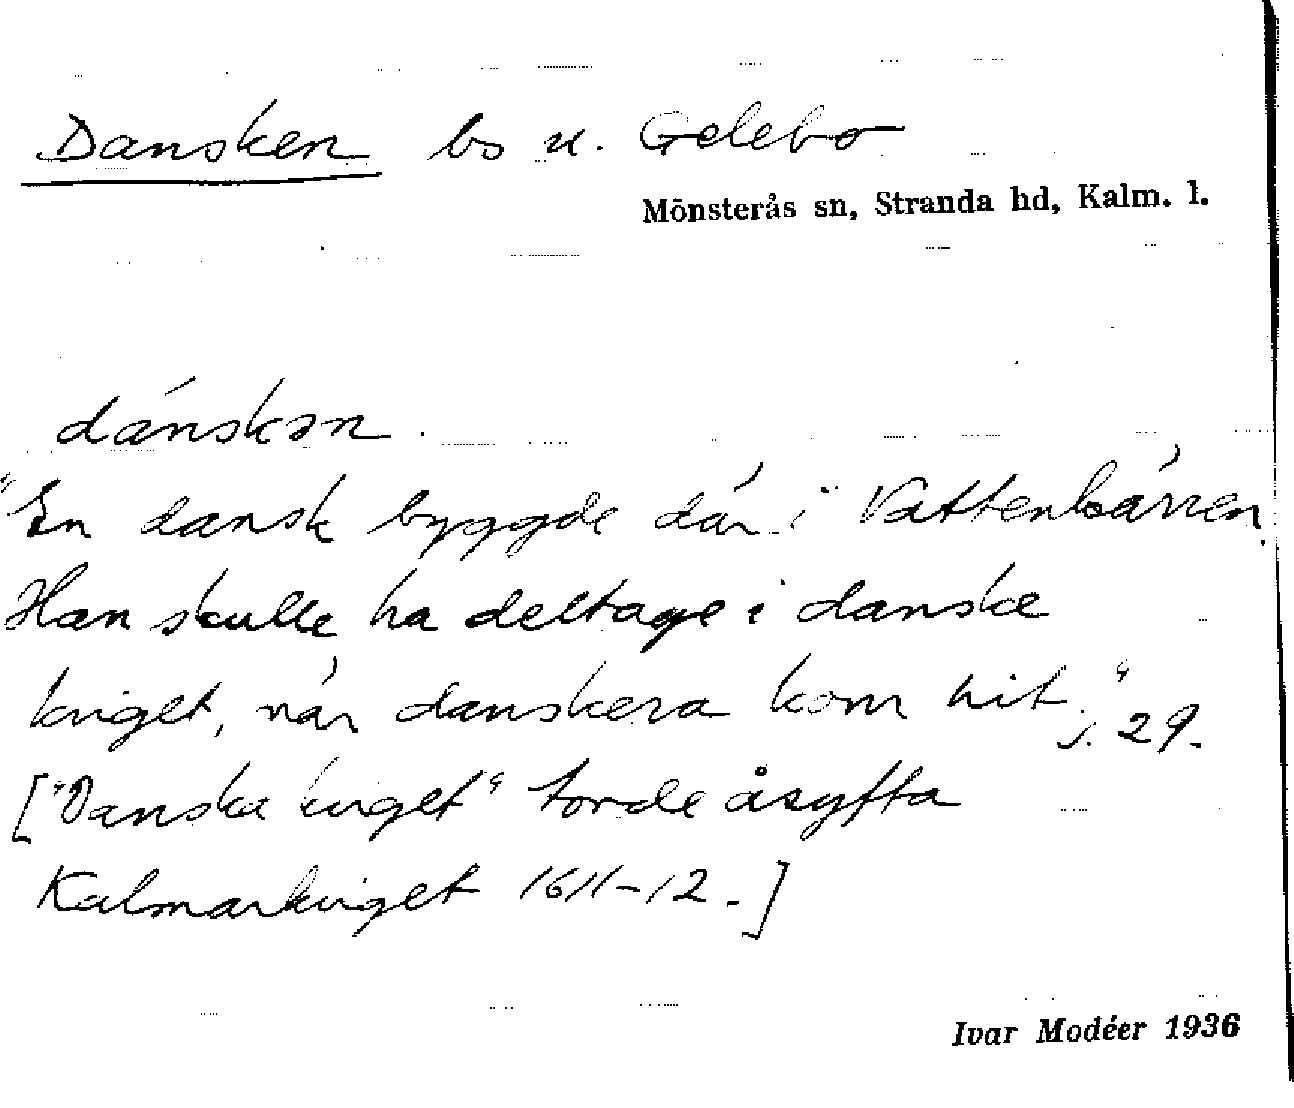 Dansken bs u. Gelebo
Mönsterås sn, Stranda hd, Kalm. l.
dánskən.
"En dansk byggde där i Vattenkärren.
Han skulle ha deltage i danske
kriget, när danskera kom hit." s. 29.
["Danska kriget" torde åsyfta
Kalmarkriget 1611-12.]
Ivar Modéer 1936